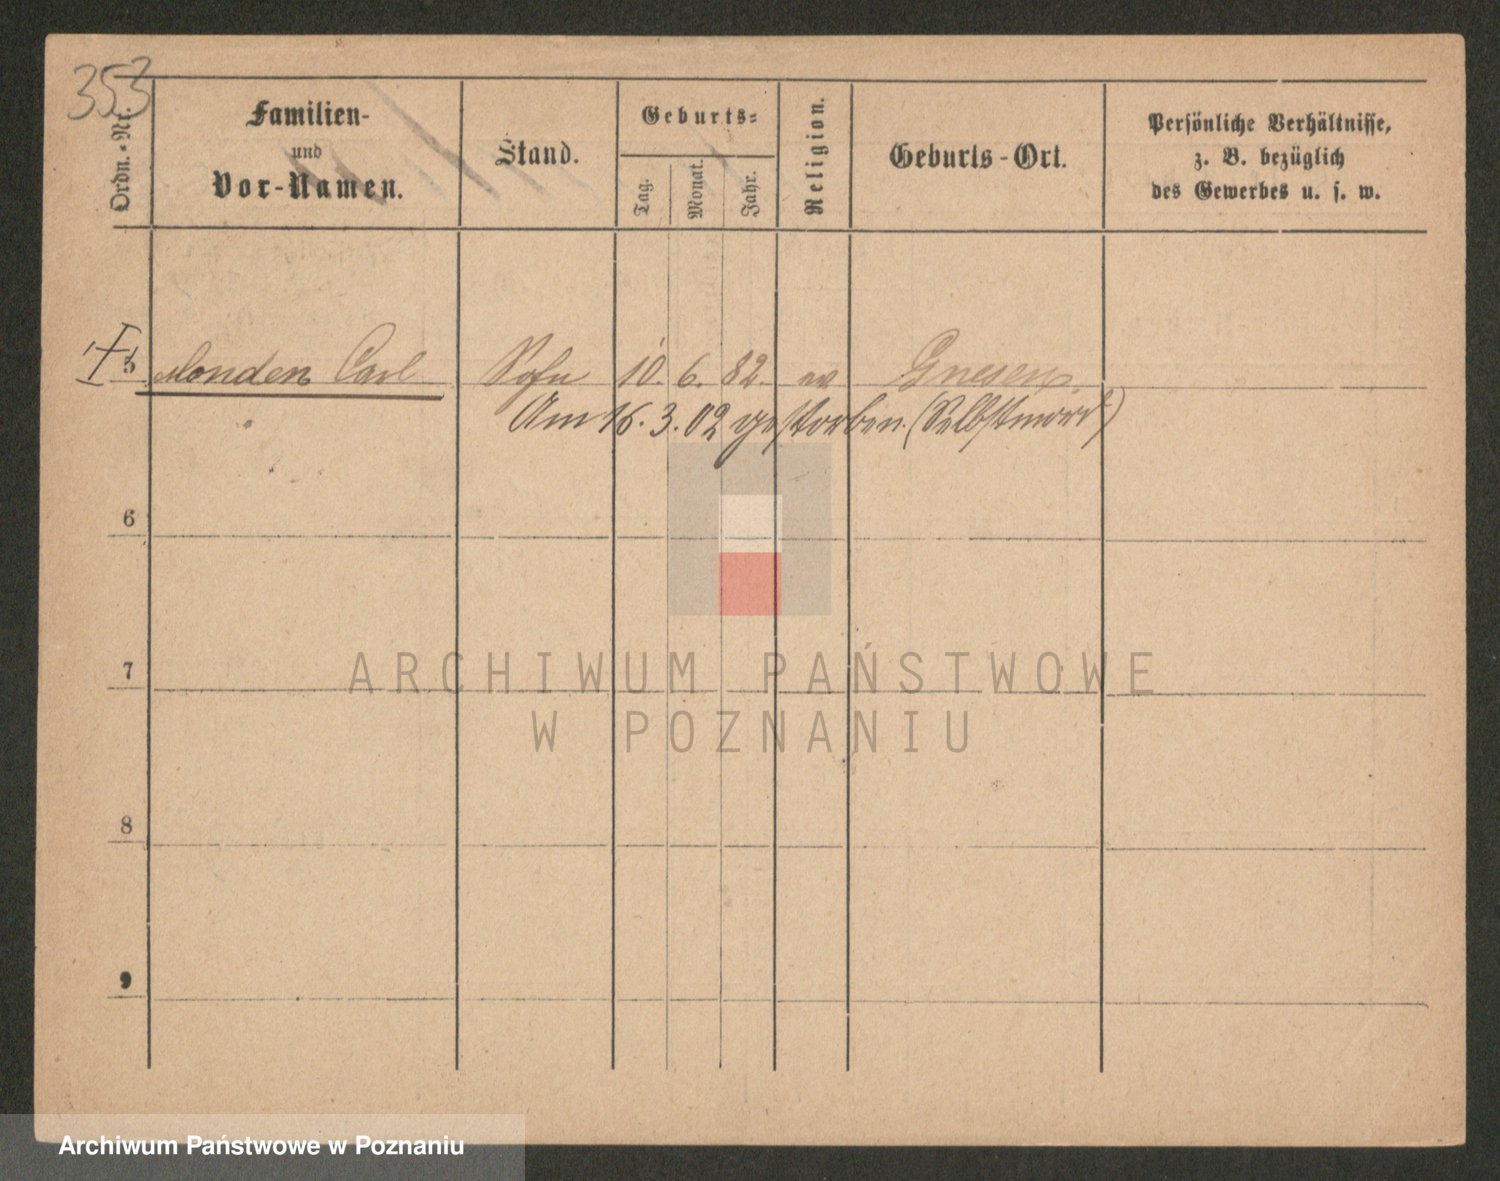 353
Ordn.-Nr.
Familien-
und
Vor-Namen.
Stand.
Geburts-
Tag.
Monat.
Jahr.
Religion.
Geburts-Ort.
Persönliche Verhältnisse,
z. B. bezüglich
des Gewerbes u. s. w.
5 Monden Carl Sohn 10. 6. 82. ev Gnesen
Am 16. 3. 02 gestorben. (Selbstmord)
6
7
8
9
ARCHIWUM PAŃSTWOWE
W POZNANIU
Archiwum Państwowe w Poznaniu